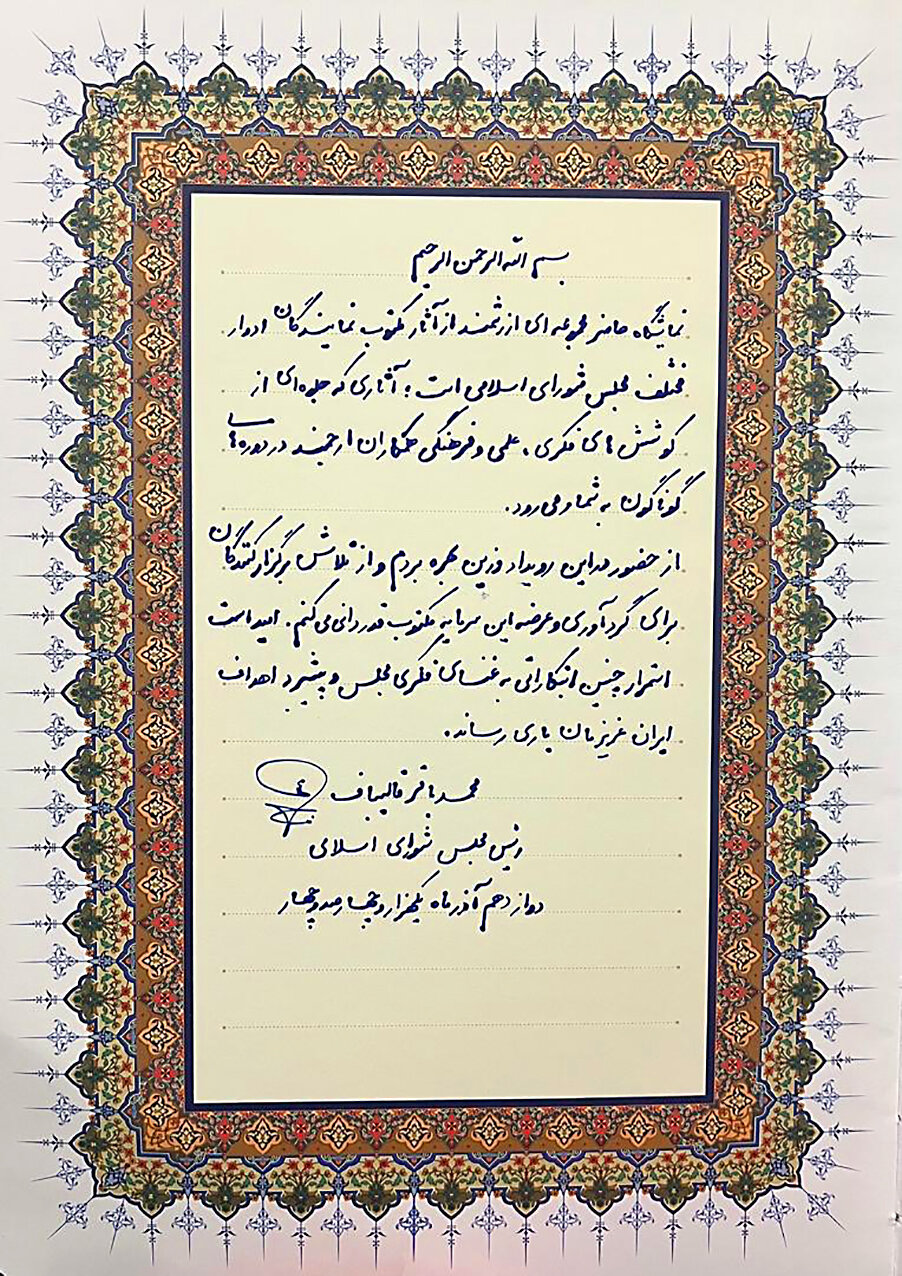 بسم الله الرحمن الرحیم
نمایشگاه حاضر مجموعه ای ارزشمند از آثار مکتوب نمایندگان ادوار
مختلف مجلس شورای اسلامی است؛ آثاری که جلوه‌ای از
کوشش های فکری، علمی و فرهنگی همکاران ارجمند در دوره‌های
گوناگون به شمار می رود.
از حضور در این رویداد وزین بهره بردم و از تلاش برگزارکنندگان
برای گردآوری و عرضه این سرمایه مکتوب قدردانی می کنم. امید است
استمرار چنین ابتکاراتی به غنای فکری مجلس و پیشبرد اهداف
ایران عزیزمان یاری رساند.
محمدباقر قالیباف
رئیس مجلس شورای اسلامی
دوازدهم آذرماه یکهزار و چهارصد و چهار